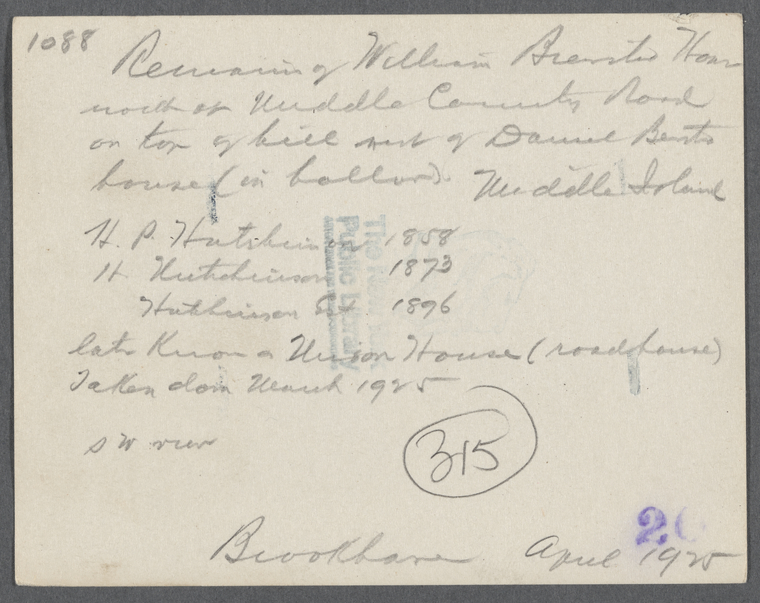 1088
Remains of William Brewster House
north of Middle Country Road
on top of hill west of Daniel
house (in hollow). Middle Island
H. P. Hutchinson 1858
H Hutchinson 1873
Hutchinson Est. 1896
later Known as Union House (roadhouse)
Taken down March 1925
S W view
315
Brookhaven April 1925
The New York
Public Library